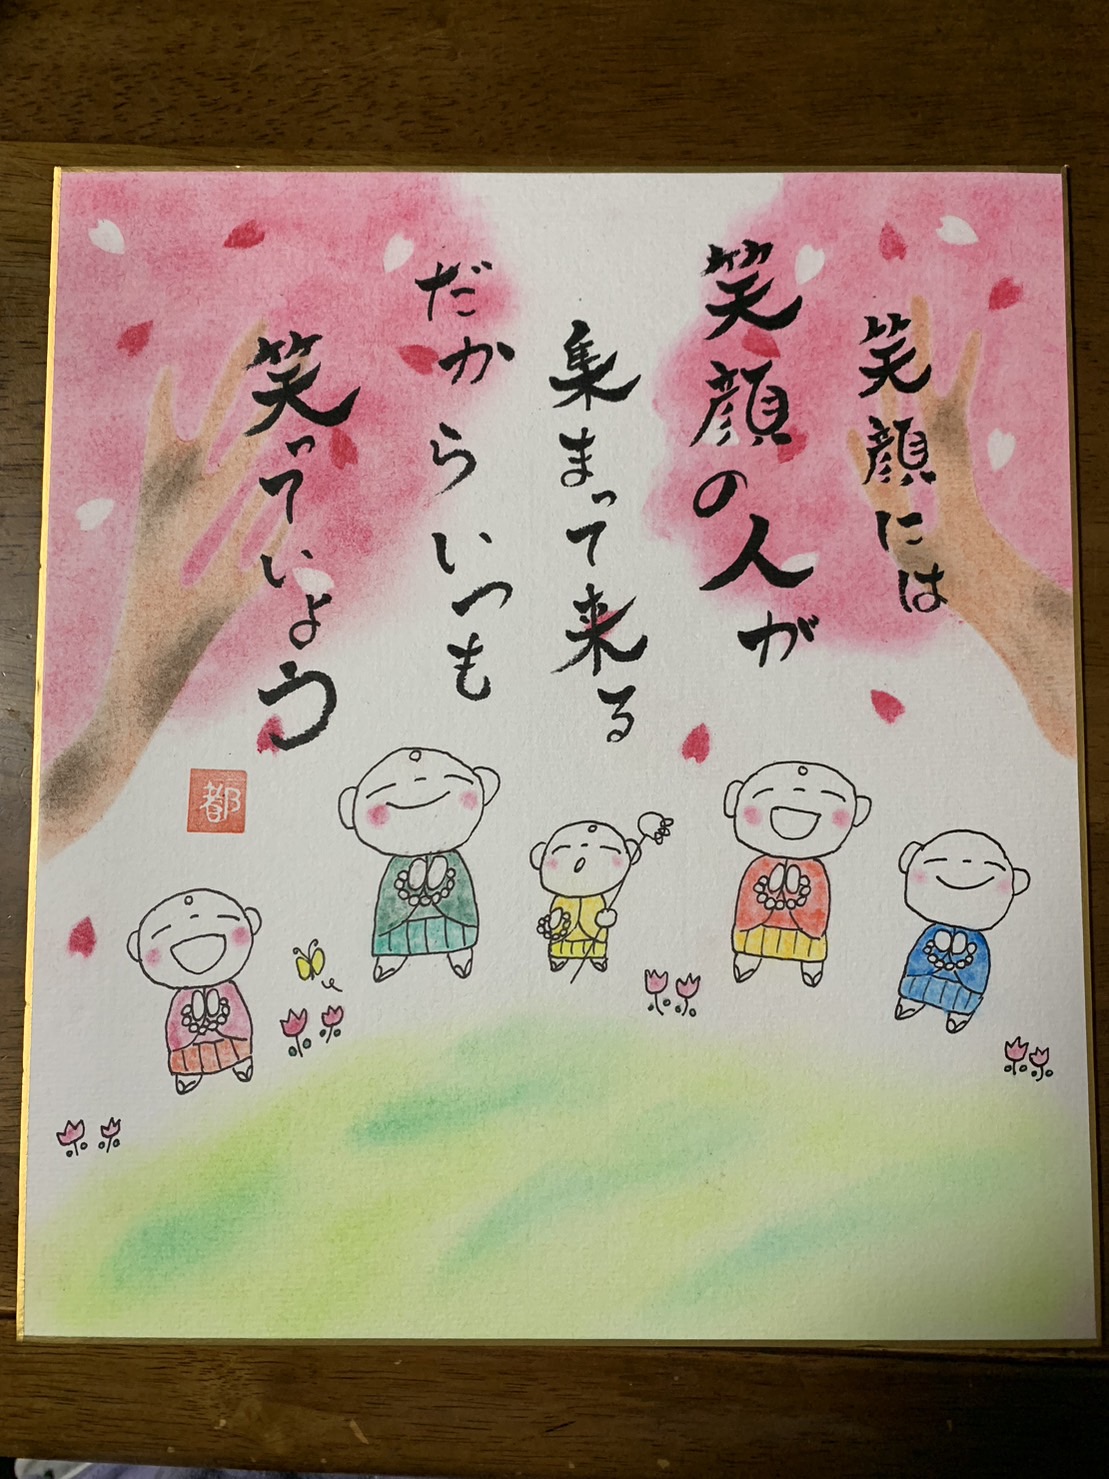 笑顔には
笑顔の人が
集まって来る
だからいつも
笑っていよう
都